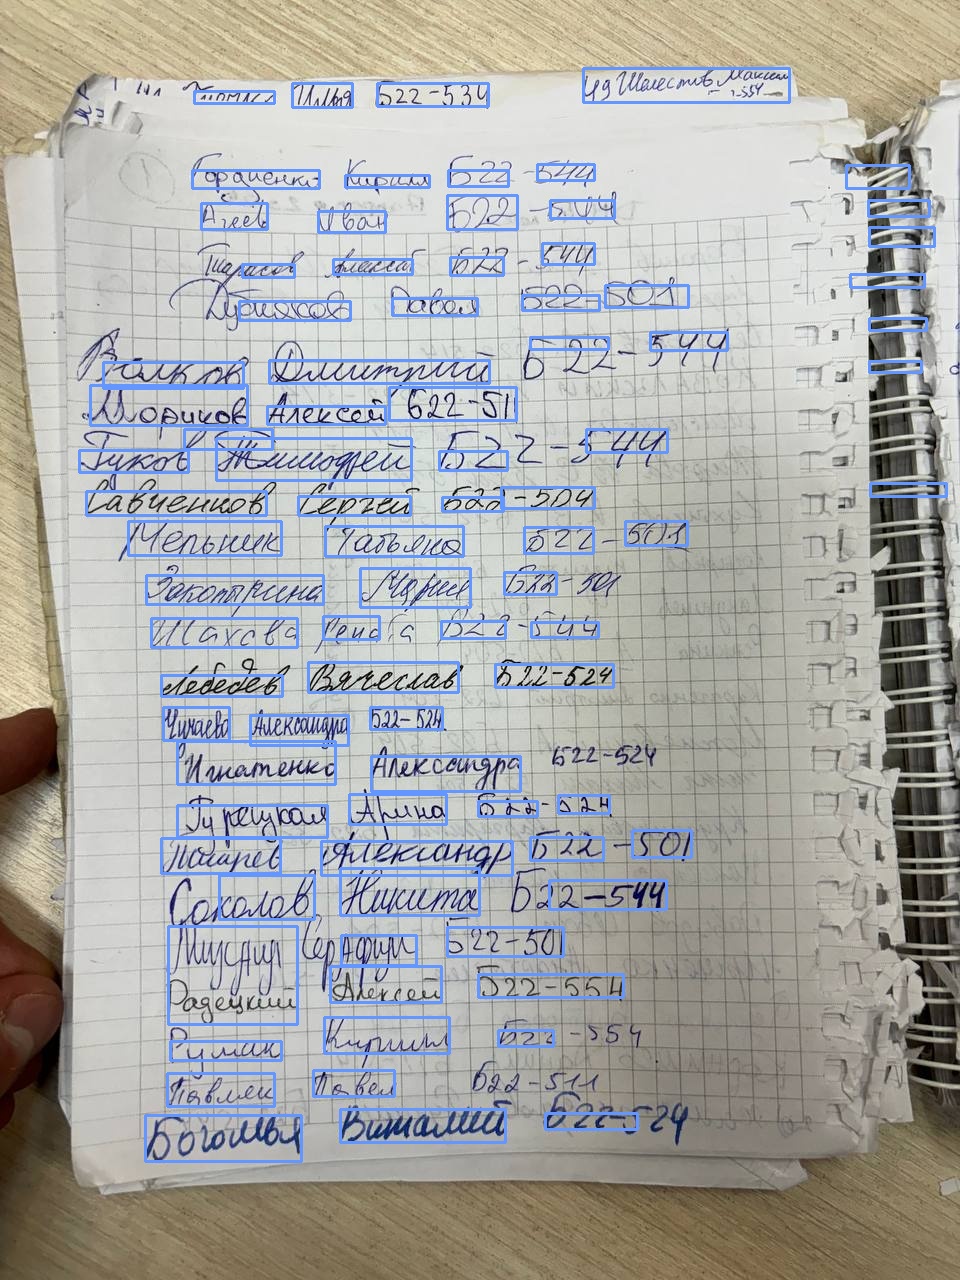 Илья Б22-534
49 Шелестов Максим
- 554
Гордиенко Кирилл Б22-544
Агеев Иван Б22-544
Тарасов Алексей Б22-544
Дубняков Павел Б22-501
Волков Дмитрий Б22-544
Шориков Алексей Б22-51
Гуков Тимофей Б22-544
Савченков Сергей Б22-504
Мельник Татьяна Б22-501
Закотырина Мария Б22-501
Шахова Рената Б22-544
Лебедев Вячеслав Б22-524
Чичаева Александра Б22-524
Игнатенко Александра Б22-524
Турецкая Арина Б22-524
Александр Б22-501
Соколов Никита Б22-544
Серафим Б22-501
Радецкий Алексей Б22-554
Руман Кирилл Б22-554
Павлюк Павел Б22-511
Богомья Виталий Б22-524